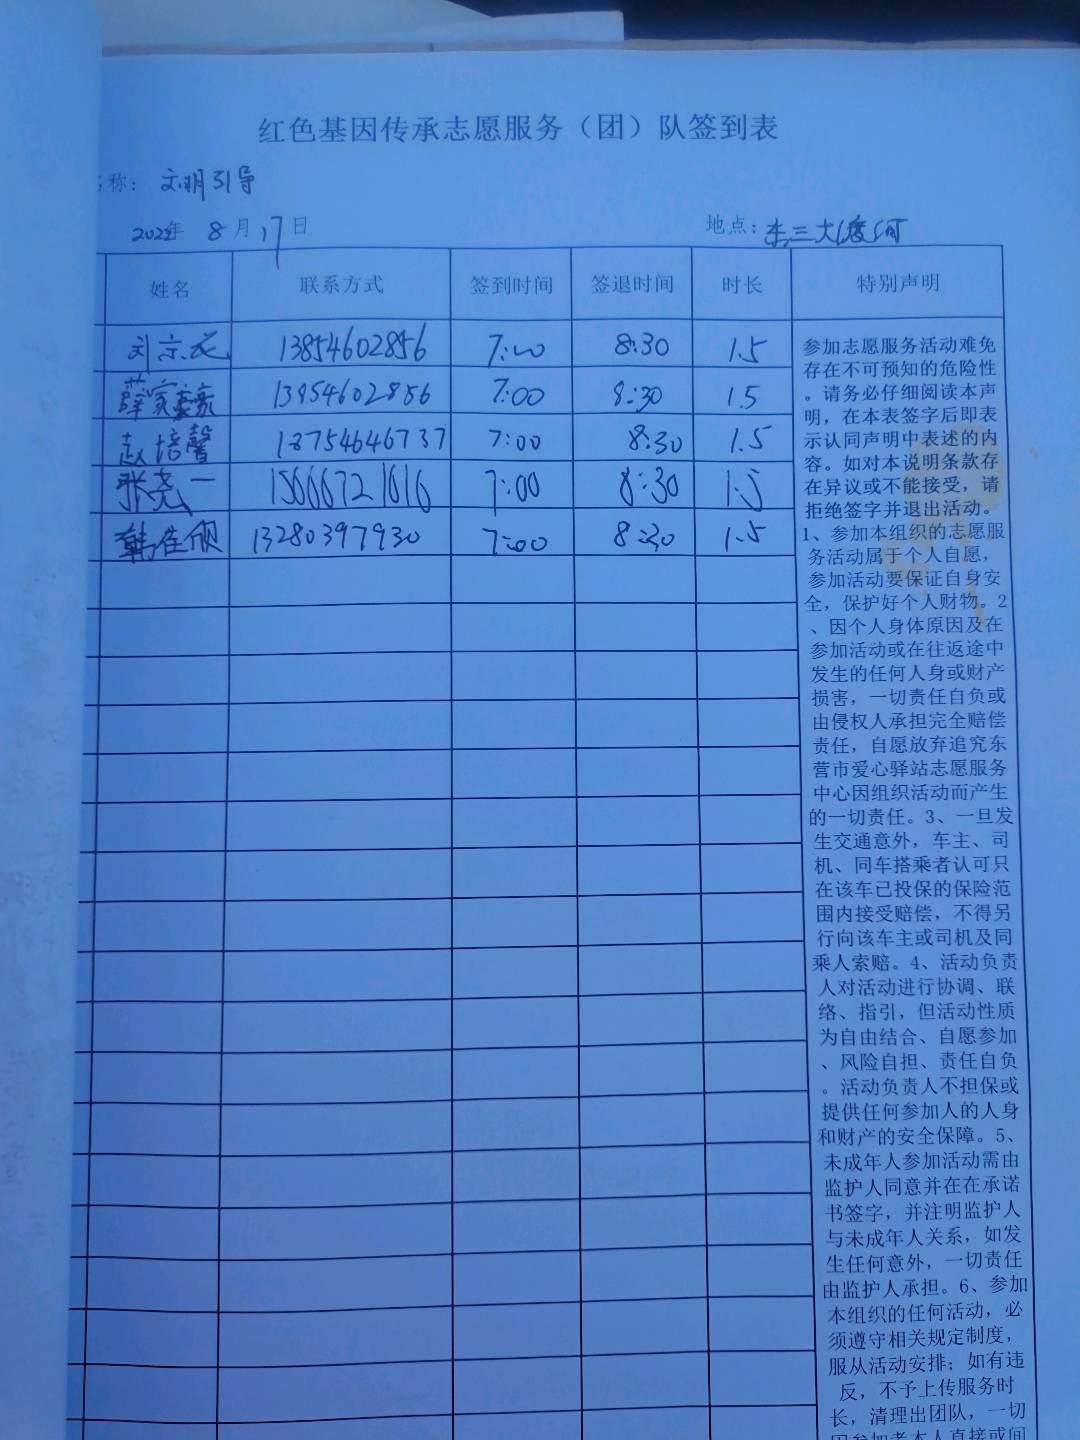 红色基因传承志愿服务（团）队签到表
称：文明引导
2022年 8月17日 地点：东三大渡河
姓名 联系方式 签到时间 签退时间 时长 特别声明
刘京 13854602856 7:00 8:30 1.5
薛家豪 13954602856 7:00 8:30 1.5
赵培馨 18754646737 7:00 8:30 1.5
张尧一 15666721616 7:00 8:30 1.5
韩佳硕 13280397930 7:00 8:30 1.5
参加志愿服务活动难免
存在不可预知的危险性
。请务必仔细阅读本声
明，在本表签字后即表
示认同声明中表述的内
容。如对本说明条款存
在异议或不能接受，请
拒绝签字并退出活动。
1、参加本组织的志愿服
务活动属于个人自愿，
参加活动要保证自身安
全，保护好个人财物。2
、因个人身体原因及在
参加活动或在往返途中
发生的任何人身或财产
损害，一切责任自负或
由侵权人承担完全赔偿
责任，自愿放弃追究东
营市爱心驿站志愿服务
中心因组织活动而产生
的一切责任。3、一旦发
生交通意外，车主、司
机、同车搭乘者认可只
在该车已投保的保险范
围内接受赔偿，不得另
行向该车主或司机及同
乘人索赔。4、活动负责
人对活动进行协调、联
络、指引，但活动性质
为自由结合、自愿参加
、风险自担、责任自负
。活动负责人不担保或
提供任何参加人的人身
和财产的安全保障。5、
未成年人参加活动需由
监护人同意并在在承诺
书签字，并注明监护人
与未成年人关系，如发
生任何意外，一切责任
由监护人承担。6、参加
本组织的任何活动，必
须遵守相关规定制度，
服从活动安排；如有违
反，不予上传服务时
长，清理出团队，一切
因参加者本人直接或间